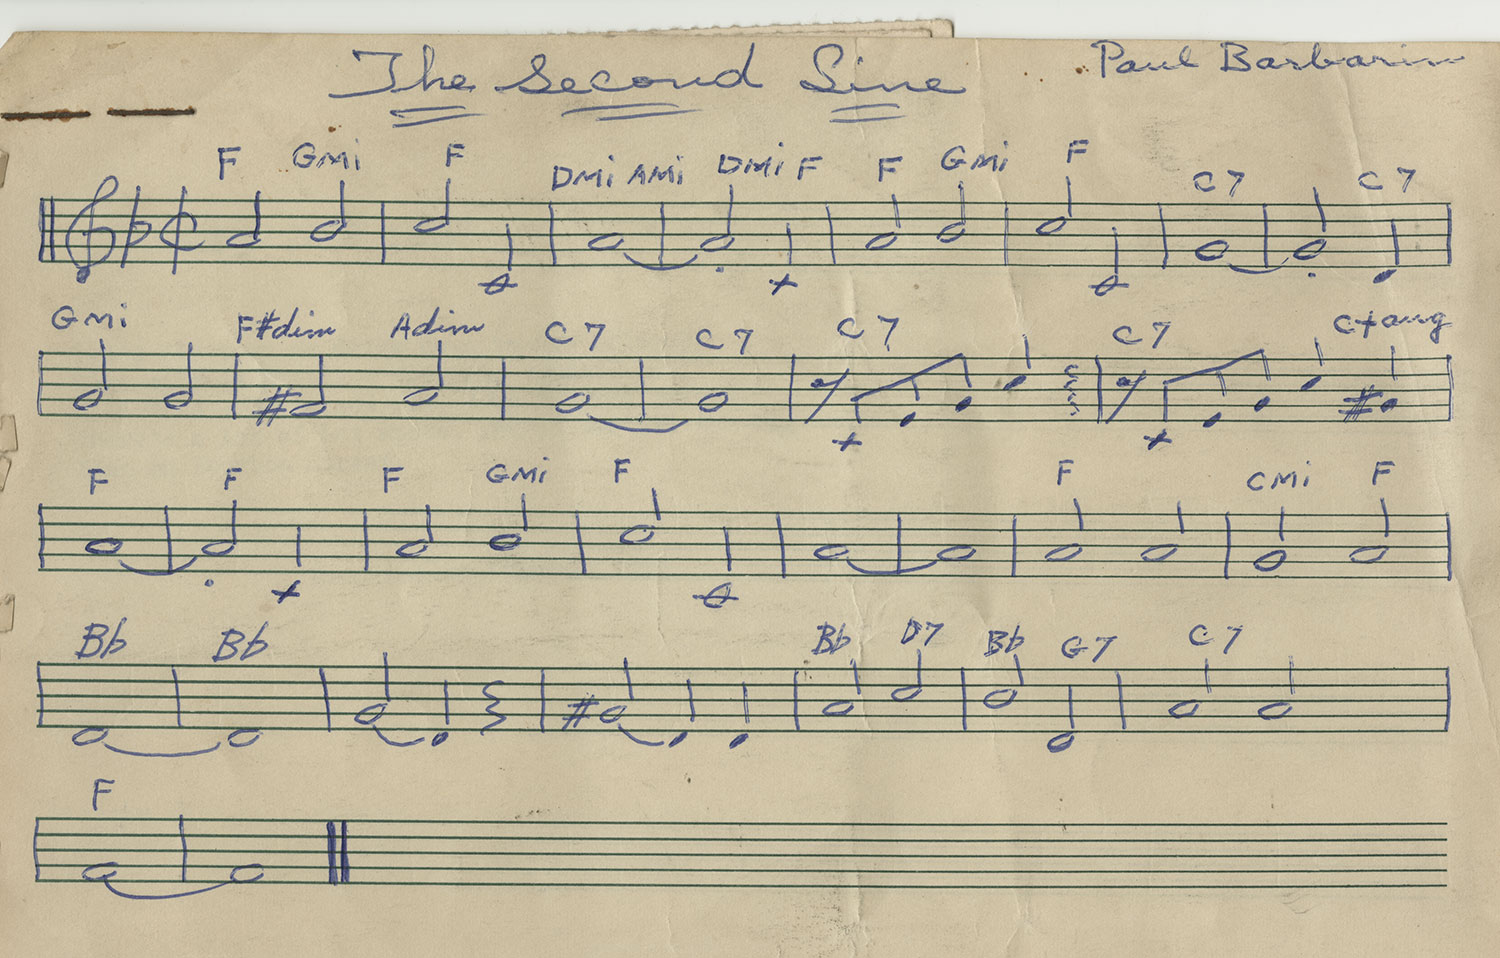 The Second Line Paul Barbarin
F GMi F DMi AMi DMi F F GMi F C7 C7
GMi F#dim Adim C7 C7 C7 C7 C+aug
F F F GMi F F CMi F
Bb Bb Bb D7 Bb G7 C7
F